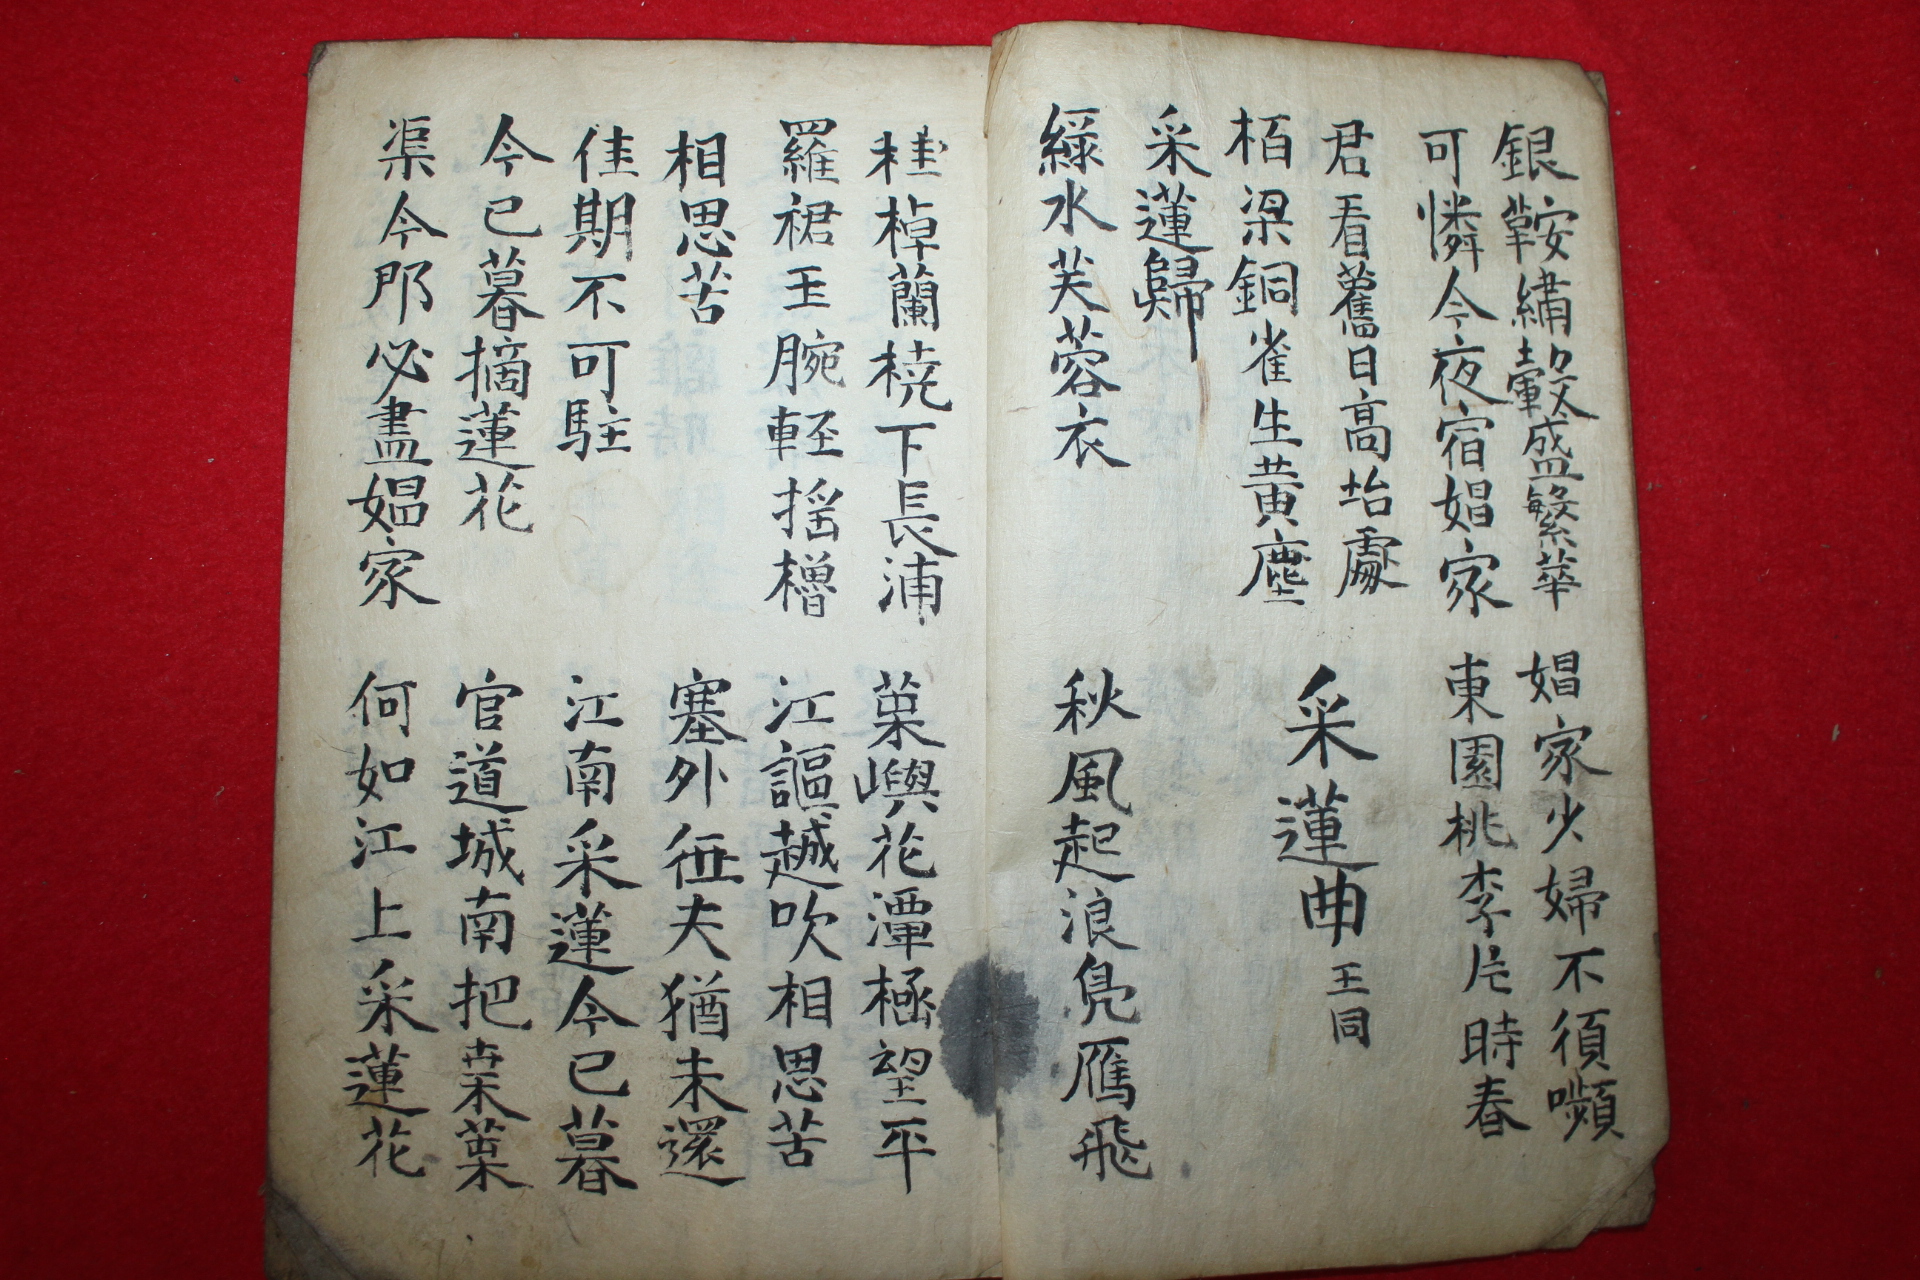 銀鞍繡轂盛繁華 娼家少婦不須嚬
可憐今夜宿娼家 東園桃李片時春
君看舊日高坮處
栢梁銅雀生黃塵 采蓮曲 王同
采蓮歸
綠水芙蓉衣 秋風起浪鳧雁飛
桂棹蘭橈下長浦 葉嶼花潭極望平
羅裙玉腕輕搖櫓 江謳越吹相思苦
相思苦 塞外征夫猶未還
佳期不可駐 江南采蓮今已暮
今已暮摘蓮花 官道城南把桒葉
渠今那必盡娼家 何如江上采蓮花